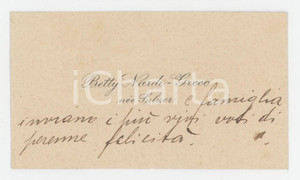 Betty Nardi-Greco
née Sulzer e famiglia
inviano i più vivi voti di
perenne felicità.